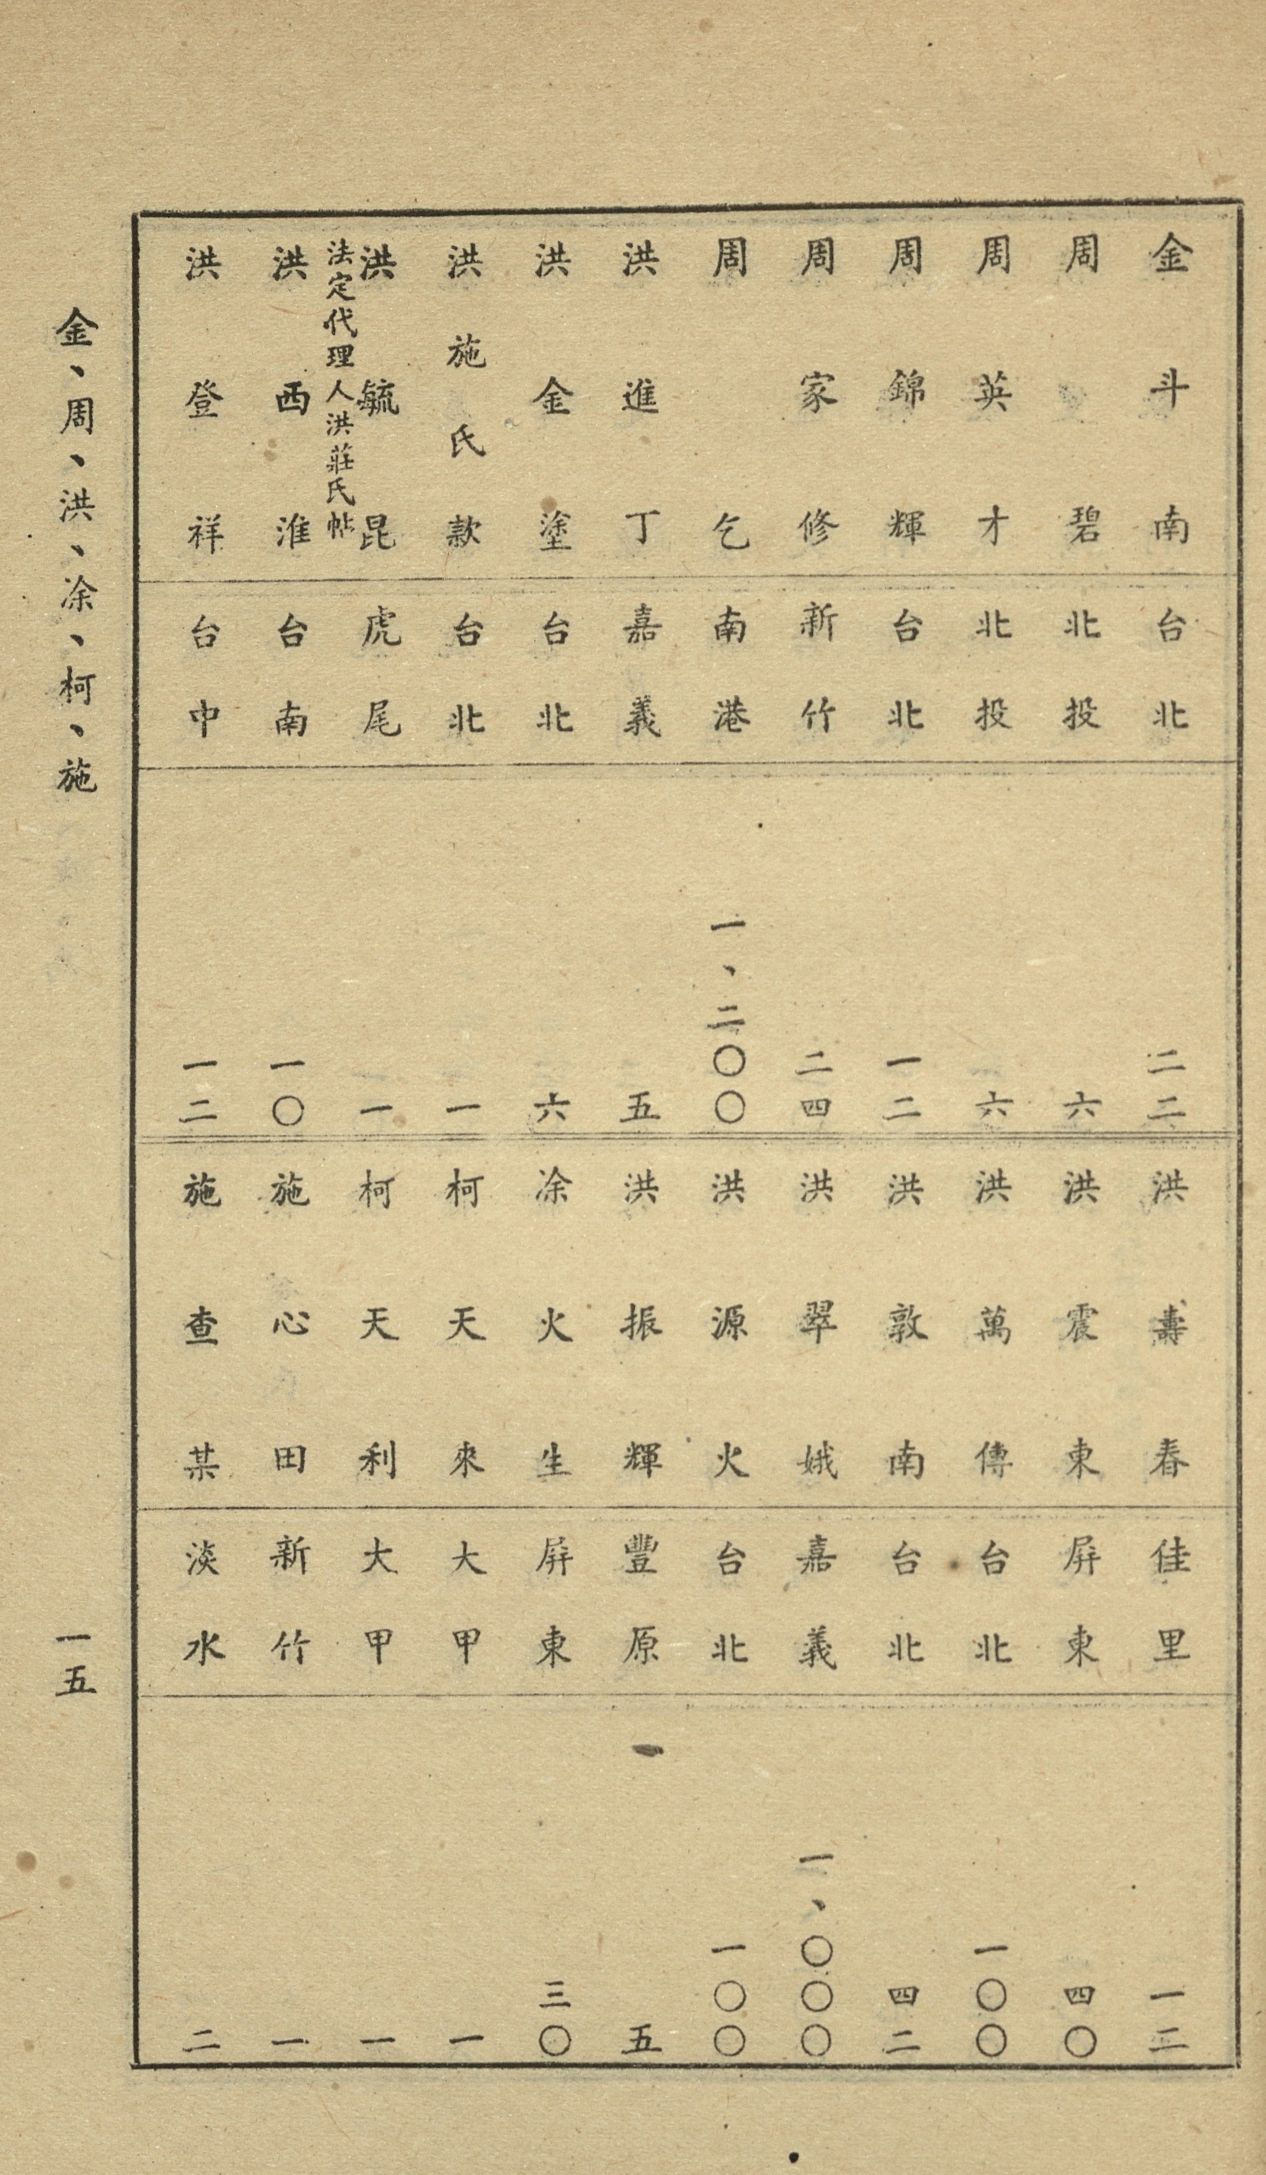 金斗南 台北 二二
周碧 北投 六
周英才 北投 六
周錦輝 台北 一二
周家修 新竹 二四
周乞 南港 一、二〇〇
洪進丁 嘉義 五
洪金塗 台北 六
洪施氏款 台北 一
洪毓昆 虎尾 一
法定代理人洪莊氏帖
洪西淮 台南 一〇
洪登祥 台中 一二
洪壽春 佳里 一二
洪震東 屏東 四〇
洪萬傳 台北 一〇〇
洪敦南 台北 四二
洪翠娥 嘉義 一、〇〇〇
洪源火 台北 一〇〇
洪振輝 豐原 五
凃火生 屏東 三〇
柯天來 大甲 一
柯天利 大甲 一
施心田 新竹 一
施查某 淡水 二
金、周、洪、凃、柯、施
一五